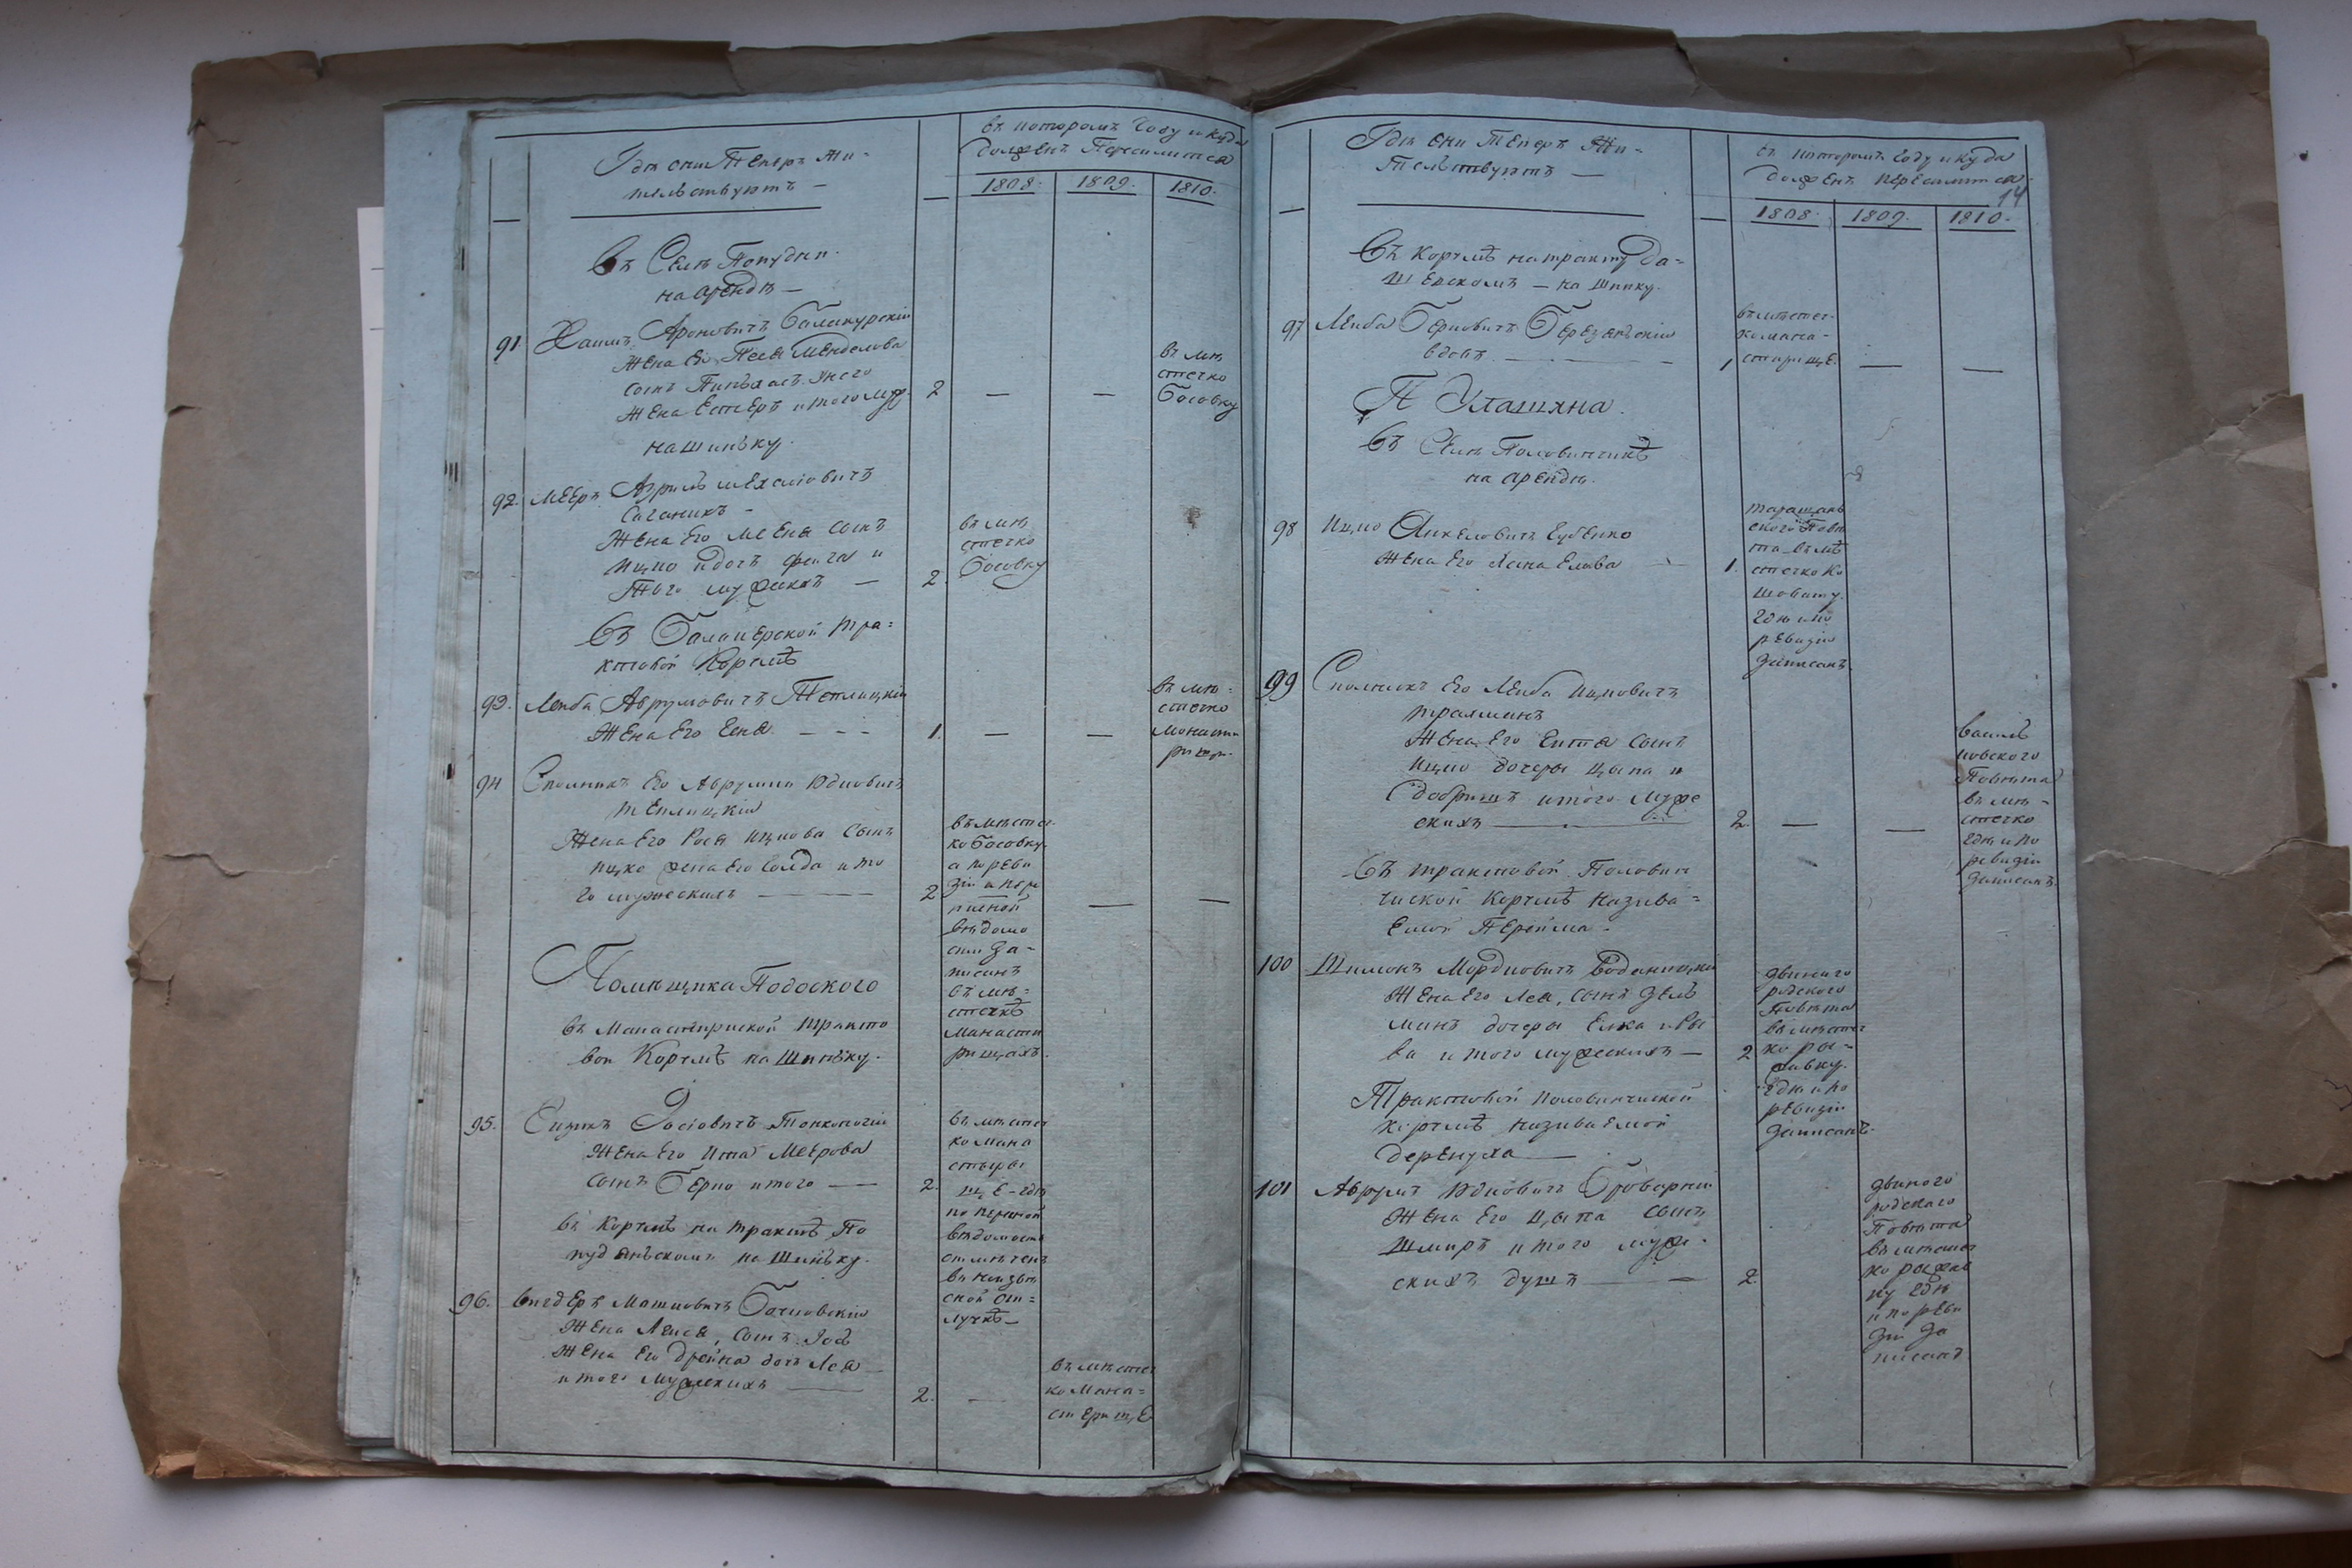 Гдѣ они Теперъ Жи-
тельствуютъ —
въ которомъ Году и куда
долженъ Переселится
1808. 1809. 1810.
Въ Селѣ Попудни.
на арендѣ —
91 Хаимъ Ароновичъ
Жена Его Песя Менделова
сынъ Пинхасъ Унего
жена Естеръ итого муж. 2 — —
въ мѣ
стечко
Босовку
на шинку.
92. Мееръ
Жена Его сынъ
Ицко идочъ Фейга и
Того мужескихъ — 2
въ мѣ
стечко
Босовку
Въ тра=
ктовой Корчмѣ
93. Лейба Аврумовичъ Теплицкій
Жена Его Еня — — — 1. — —
въ мѣ-
стечко
Монасти
рищи.
94 Спольникъ Его Юдковичъ
Теплицкій
Жена Его Рося Ицкова Сынъ
Ицко жена Его Голда и то
го мужескихъ — 2 — —
въ мѣстеч
ко Босовку
а по реви
зіи и пере
писной
вѣдомо
сти За-
писанъ
въ мѣ-
стечкѣ
Манасти
рищахъ.
Помѣщика Подоского
въ Манастириской тракто
вой Корчмѣ на Шинку.
95. Тонконогій
Жена Его Ита Меерова
сынъ Берко итого — 2.
въ мѣстеч
ко Мана
стыри
щЕ-гдѣ
по переписной
вѣдомости
отмѣченъ
лучкѣ —
въ Корчмѣ на трактѣ По
пуднянскомъ на Шинку.
96. Вигдеръ Машковичъ
Жена Лейся, Сынъ Іосъ
Жена Его Дрейна дочь Лея
итого Мужскихъ — 2. —
въ мѣстеч
ко Мана-
стерищЕ
Гдѣ они Теперъ Жи-
тельствуютъ —
въ которомъ Году и куда
долженъ переселится
14
1808. 1809. 1810.
Въ корчмѣ натракту Да=
шевскомъ — на Шинку.
97 Лейба Берковичъ
вдовъ — — 1 — —
въмѣстеч-
комана-
стирищЕ.
П Улашина.
Въ Селѣ Половинчикѣ
на арендѣ.
98 Ицко
Жена Его Хана 1.
таращан
ского Повѣ
та въ мѣ
стечко Ко
шовату.
Гдѣ и по
ревизіи
Записанъ.
99 Спольникъ Его Лейба Ицковичъ
Жена Его Ейтя Сынъ
Ицко дочеры Цыпа и
Добришъ итого Муже
скихъ — 2. — —
васил
ковского
Повѣта
въ мѣ-
стечко
гдѣ и по
ревизіи
Записанъ.
Въ трактовой Половин
чиской Корчмѣ Назива-
емой Перейма-
100 Шимонъ Мордковичъ
Жена Его Лея, сынъ Зель
манъ дочеры Елка и Ры
ва и того мужескихъ — 2
звиного
родского
Повѣта
въ мѣстеч
ко Ры-
жавку.
гдѣ и по
ревизіи
Записанъ.
Трактовой половинчиской
корчмѣ називаемой
деренуха —
101 Аврумъ Юдковичъ
Жена Его Цыпа Сынъ
Шмиръ итого муже-
скихъ душъ — — 2.
звиного
родскаго
Повѣта
въ мѣстеч
ко рыжав
ку гдѣ
и по реви
зіи За
писанъ